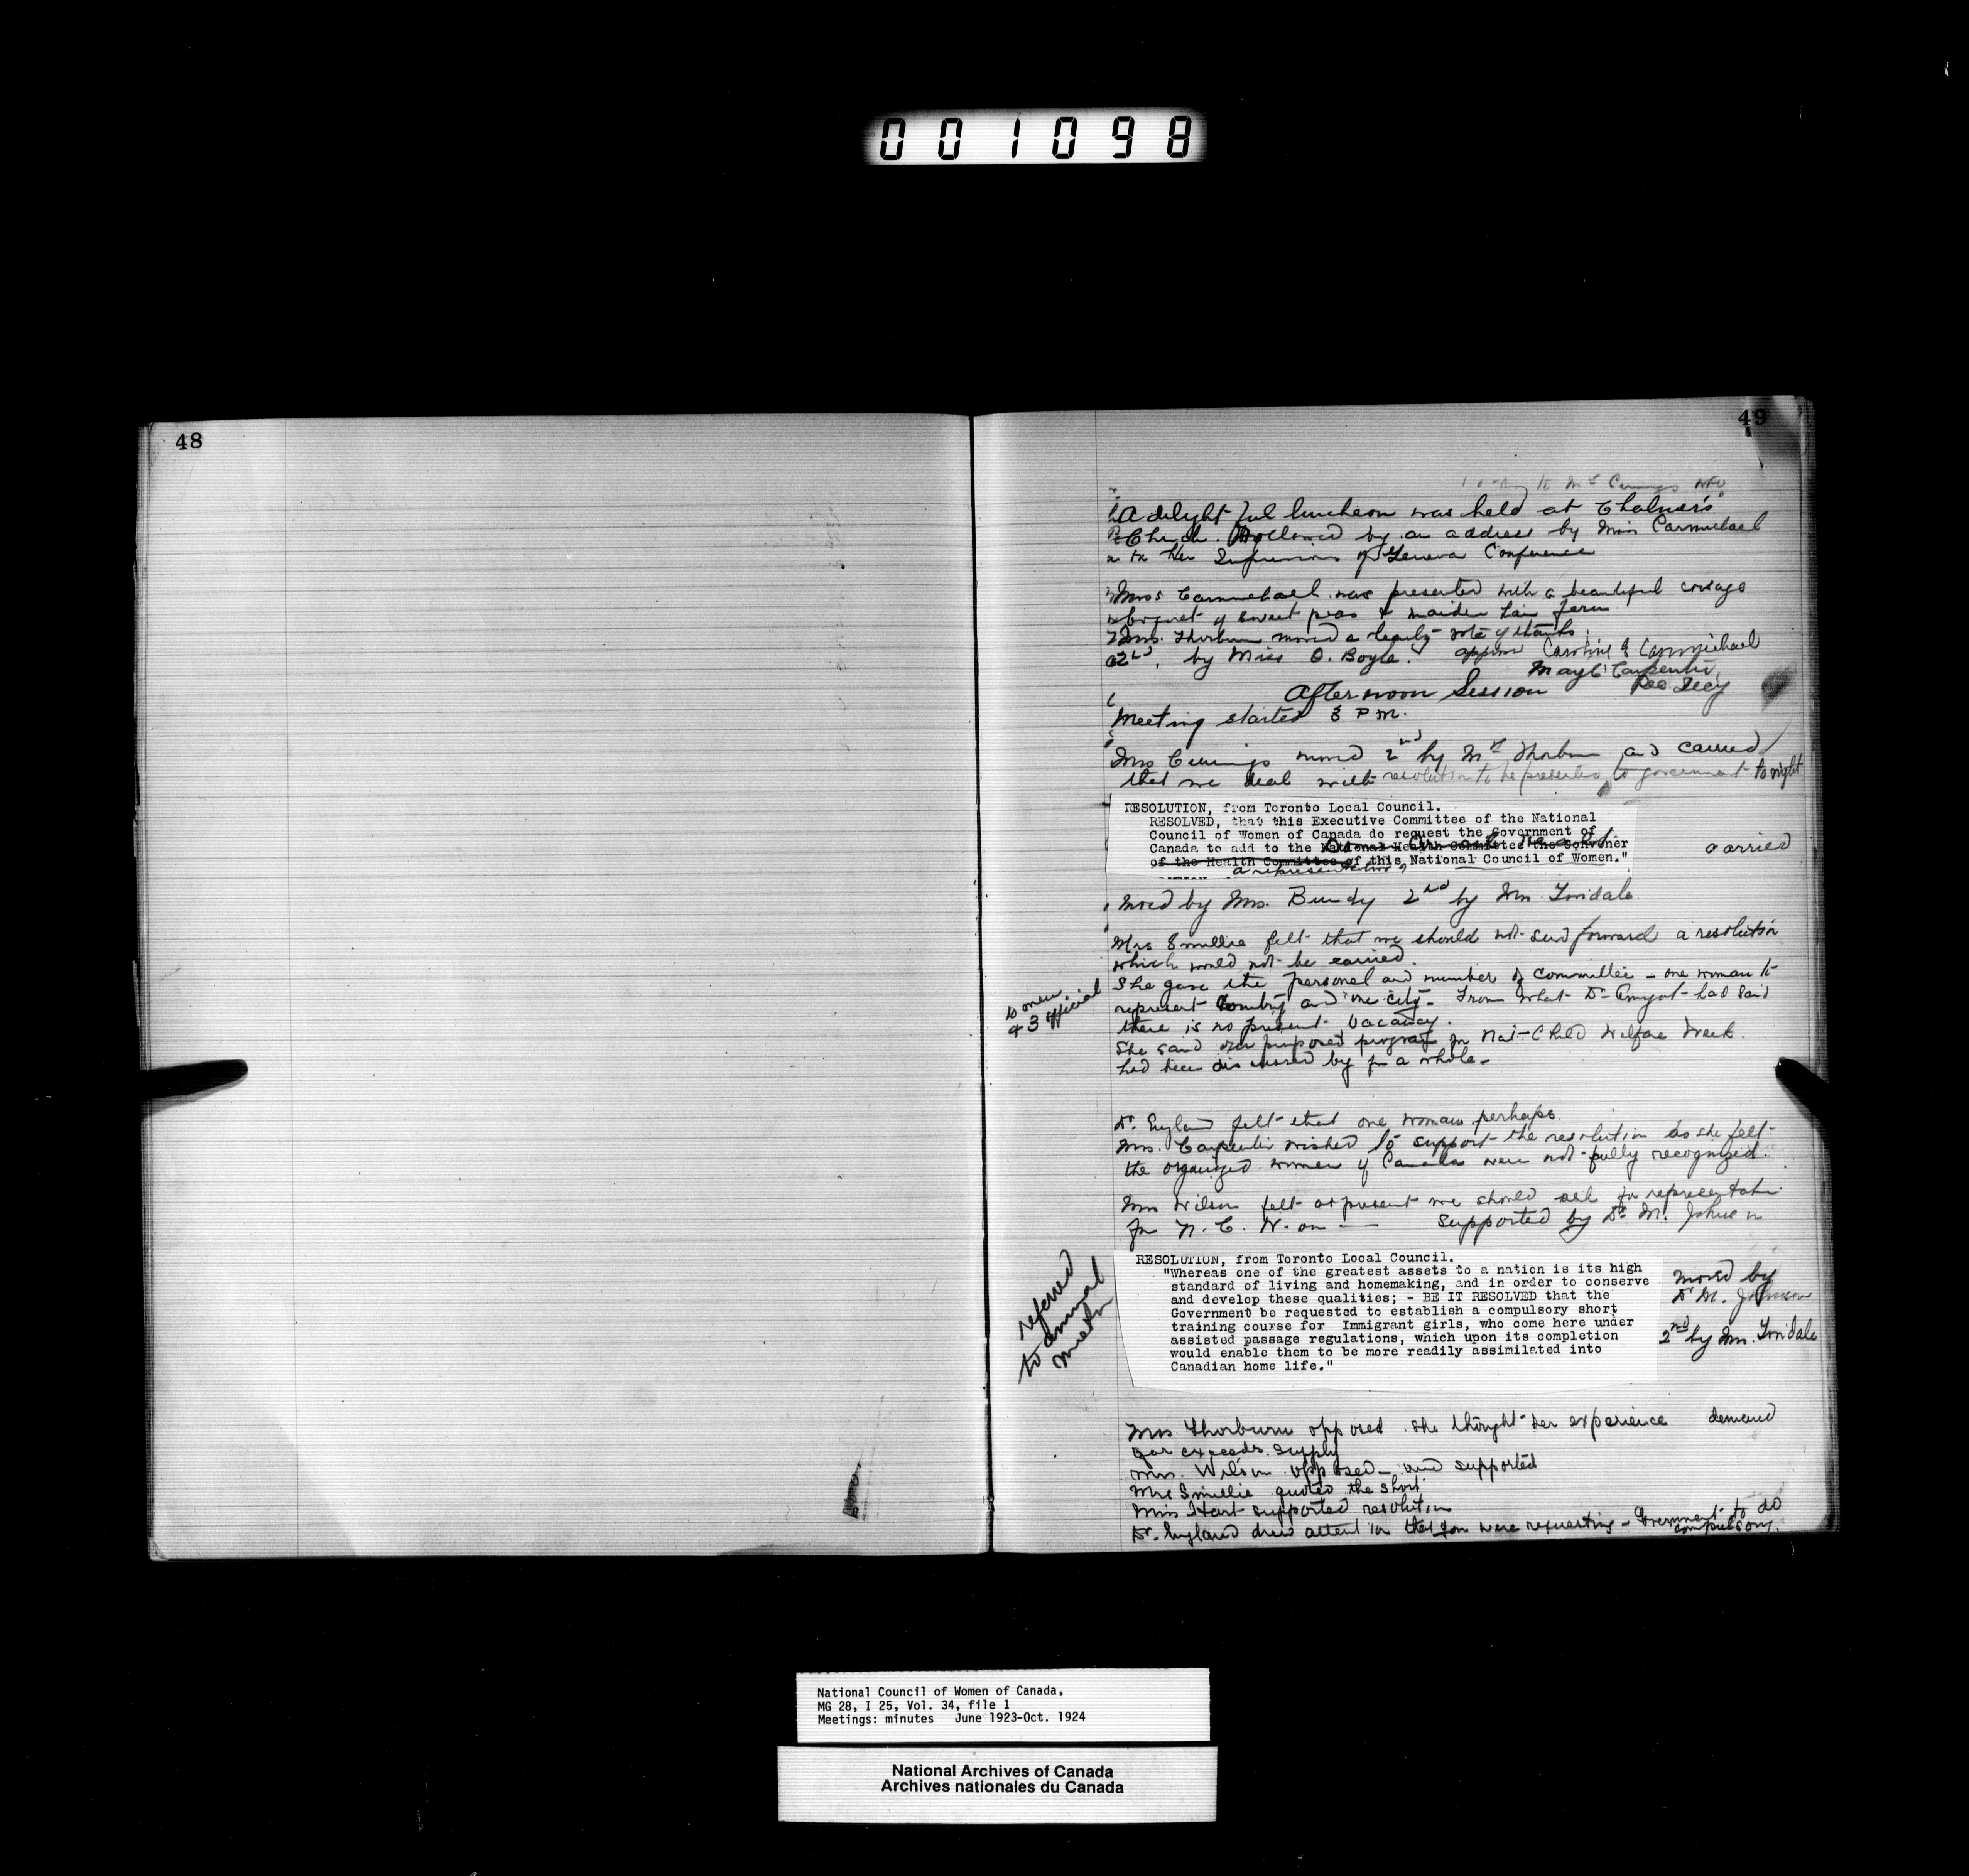 001098
48
49
A delightful luncheon was held at Chalmer's
Church. Followed by an address by Miss Carmichael
Geneva Conference
Miss Carmichael was presented with a beautiful corsage
of sweet peas & maiden hair fern
Mrs. Thorburn moved a hearty vote of thanks.
2nd. by Miss O. Boyle. Caroline E Carmichael
May C Carpenter
Rec. Secy
Afternoon Session
Meeting started 3 P M.
Mrs Cummings moved 2nd by Mrs Thorburn and carried
that we deal with resolution to be presented to government to night
RESOLUTION, from Toronto Local Council.
RESOLVED, that this Executive Committee of the National
Council of Women of Canada do request the Government of
Canada to add to the National Health Committee the Convener
of the Health Committee of this National Council of Women."
a representative
carried
Moved by Mrs. Bundy 2nd by Mrs. Tovidale
Mrs Smillie felt that we should not send forward a resolution
which would not be carried.
She gave the personal and number of committee - one woman to
represent country and one city. From what Dr Amyot had said
there is no present vacancy.
10 men
& 3 official
She said our proposed program for Nat Child Welfare Week
had been discussed by for a whole -
Dr. England felt that one woman perhaps.
Mrs. Carpenter wished to support the resolution as she felt
the organized women of Canada were not fully recognized.
Mrs Wilson felt at present we should ask for representation
for N. C. W. on — supported by Dr M. Johnson
RESOLUTION, from Toronto Local Council.
"Whereas one of the greatest assets to a nation is its high
standard of living and homemaking, and in order to conserve
and develop these qualities; - BE IT RESOLVED that the
Government be requested to establish a compulsory short
training course for Immigrant girls, who come here under
assisted passage regulations, which upon its completion
would enable them to be more readily assimilated into
Canadian home life."
referred
to annual
meetn
moved by
Dr M. Johnson
2nd by Mrs. Tovidale
Mrs Thorburn opposed. She thought her experience demand
far exceeds supply
Mrs. Wilson opposed - and supported
Mrs Smillie quoted the short
Miss Hart supported resolution
Dr. England drew attention that you were requesting - Government to do
compulsory.
National Council of Women of Canada,
MG 28, I 25, Vol. 34, file 1
Meetings: minutes June 1923-Oct. 1924
National Archives of Canada
Archives nationales du Canada